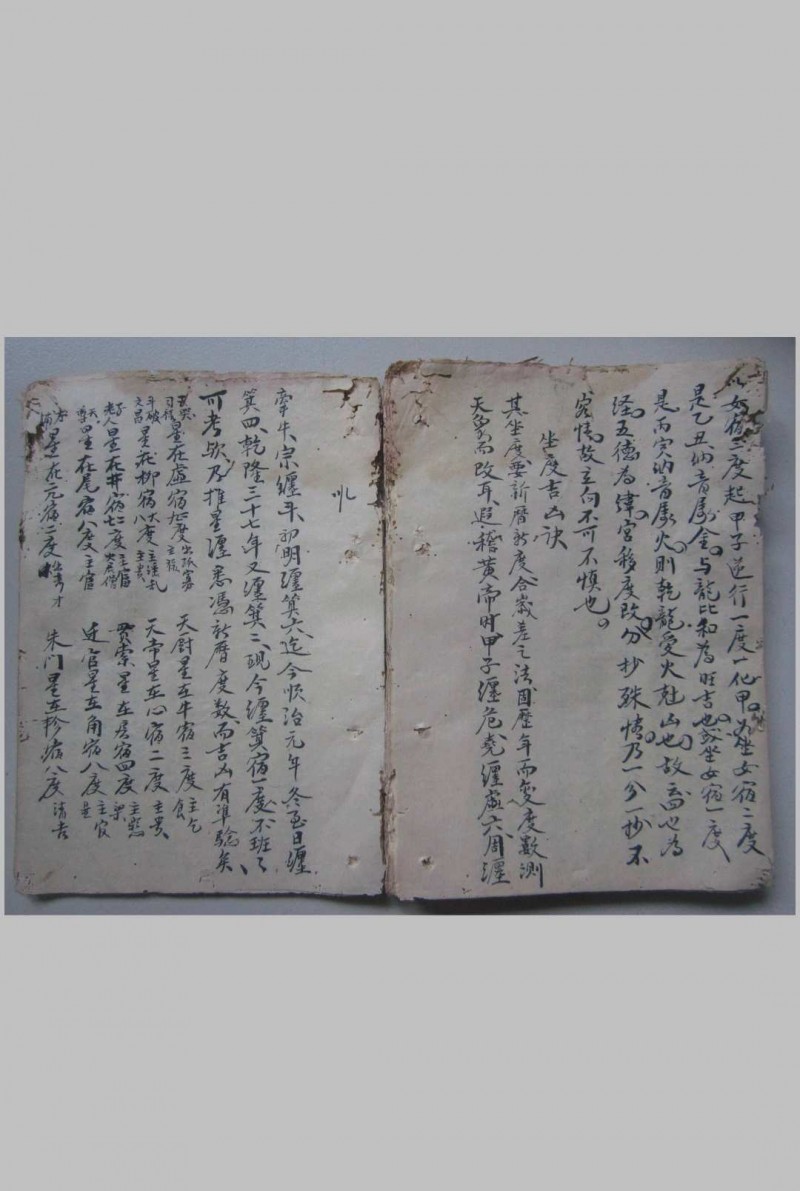 以女宿二度起甲子逆行一度一位甲子坐女宿二度
是乙丑納音屬金与龍比和為旺吉也或坐女宿一度
是丙寅納音屬火則乾龍受火尅山也故為
經五德為緯宮移度改分抄殊情乃一分一抄不
容情故立向不可不慎也
坐度吉凶訣
其坐度要新曆新度合歲差之法因歷年而变度数測
天象而改耳遐稽黄帝时甲子纏危堯纏虛六周纏
牽牛宗纏斗初明纏箕六迄今順治元年冬至日纏
箕四乾隆三十七年又纏箕二現今纏箕宿一度不班々
可考欤及推星纏悉憑新曆度数而吉凶有准驗矣
星在虛宿九度
天厨星在牛宿三度主乞食
文昌星在柳宿八度
天帝星在心宿二度主贵
老人星在井宿七度主官
貫索星在居宿四度主
星在尾宿八度主官
進官星在角宿八度主官
星在亢宿二度
朱门星在軫宿八度